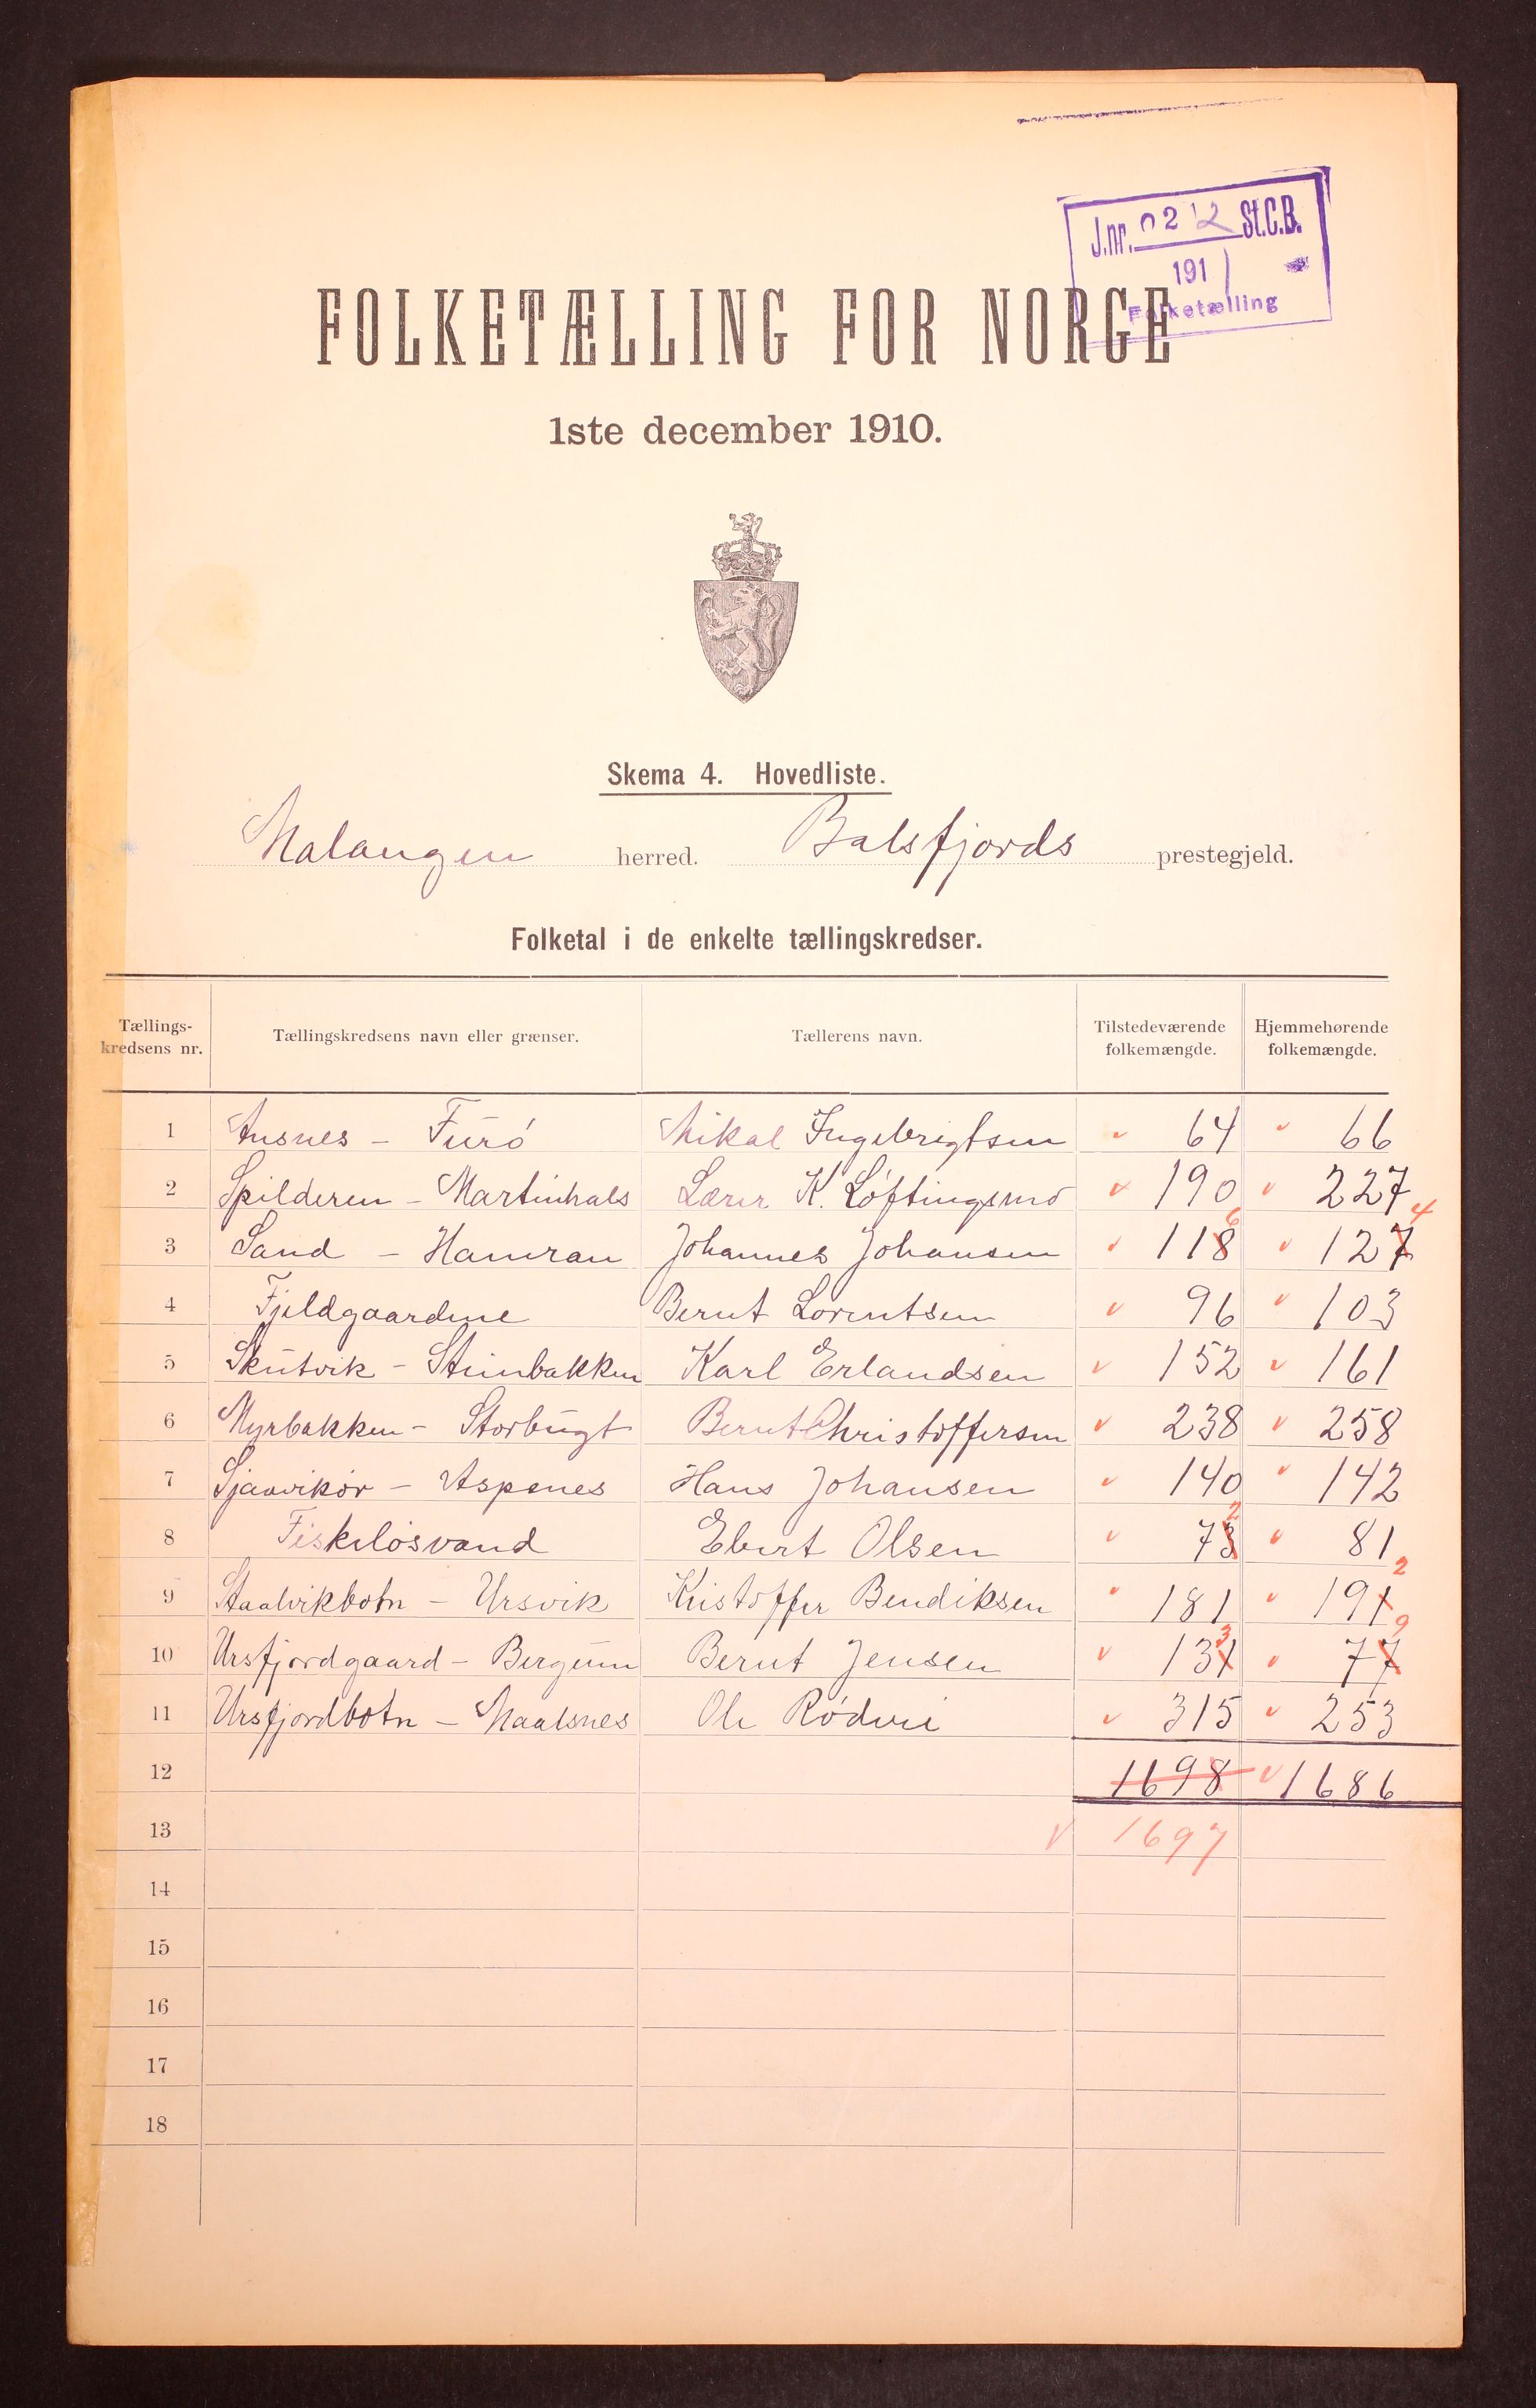 J.nr. 0212 St.C.B.
191
Folketælling
FOLKETÆLLING FOR NORGE
1ste december 1910.
Skema 4. Hovedliste.
Malangen herred. Balsfjords prestegjeld.
Folketal i de enkelte tællingskredser.
Tællings-kredsens nr. Tællingskredsens navn eller grænser. Tællerens navn. Tilstedeværende folkemængde. Hjemmehørende folkemængde.
1 Ansnes - Furö Mikal Ingebrigtsen 64 66
2 Spilderen - Martinhals Lærer K. Löftingsmo 190 227
3 Sand - Hamran Johannes Johansen 118 6 127 4
4 Fjeldgaardene Bernt Lorentsen 96 103
5 Skutvik - Stenbakken Karl Erlandsen 152 161
6 Myrbakken - Storbugt Bernt Christoffersen 238 258
7 Sjaavikör - Aspenes Hans Johansen 140 142
8 Fiskelösvand Ebert Olsen 73 2 81
9 Staalvikbotn - Ursvik Kristoffer Bendiksen 181 191 2
10 Ursfjordgaard - Bergum Bernt Jensen 131 3 77 9
11 Ursfjordbotn - Maalsnes Ole Rödvei 315 253
12 1698 1686
13 1697
14
15
16
17
18